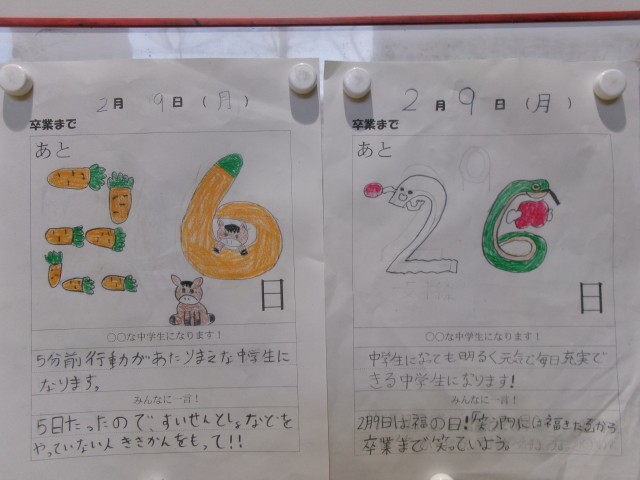 2月 9日(月)
卒業まで
あと
26
日
〇〇な中学生になります!
5分前行動があたりまえな中学生に
なります。
みんなに一言!
5日たったので、すいせんとしょなどを
やっていない人ききかんをもって!!
2月 9日(月)
卒業まで
あと
26
日
〇〇な中学生になります!
中学生になっても明るく元気で毎日充実で
きる中学生になります!
みんなに一言!
2月9日は福の日!笑う門には福きたるから
卒業まで笑っていよう。